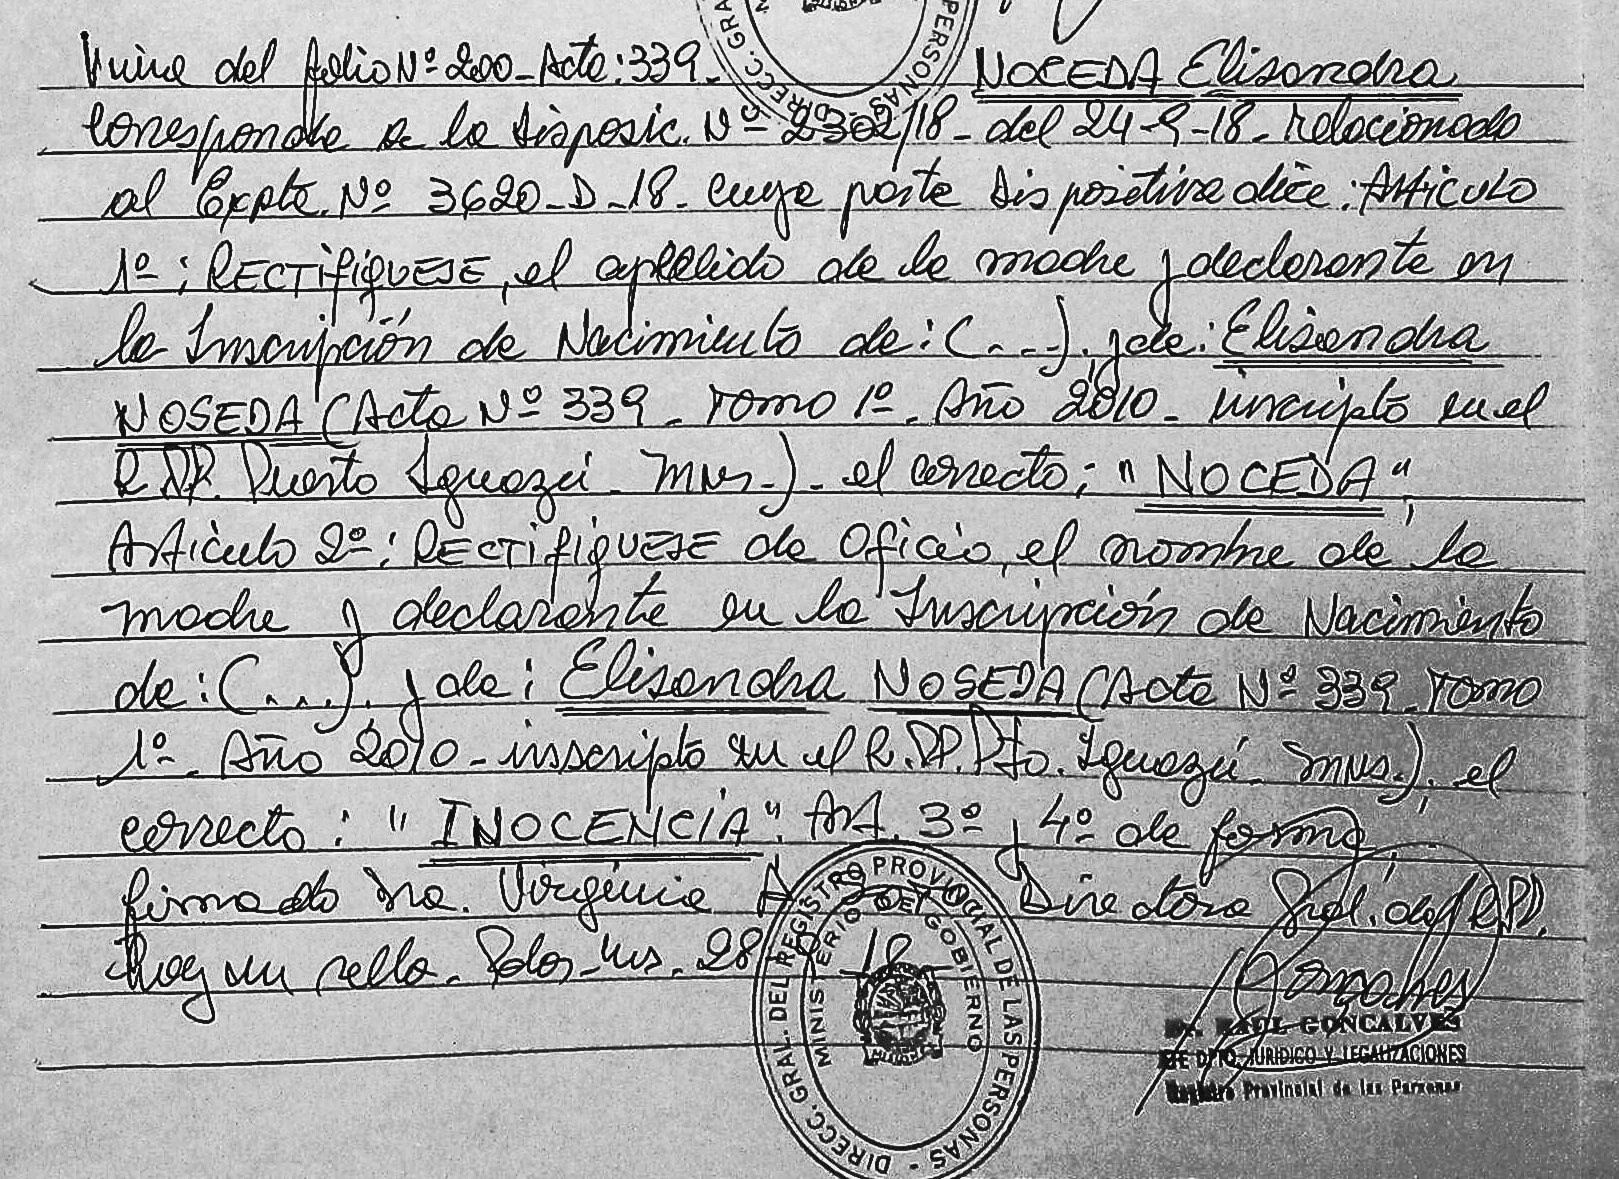 Viene del folio Nº 200 - Acta: 339.- NOCEDA Elisandra
Corresponde a la Disposic. Nº 2302/18 - del 24-9-18 - relacionado
al Expte. Nº 3620-D-18 - cuya parte Dispositiva dice: Artículo
1º: RECTIFIQUESE, el apellido de la madre y declarante en
la Inscripción de Nacimiento de: (...). y de: Elisandra
NOSEDA (Acta Nº 339 - Tomo 1º - Año 2010 - inscripto en el
R.P.P. Puerto Iguazú - Mnes.) - el correcto: "NOCEDA",
Artículo 2º: RECTIFIQUESE de Oficio, el nombre de la
madre y declarante en la Inscripción de Nacimiento
de: (...). y de: Elisandra NOSEDA (Acta Nº 339 - Tomo
1º - Año 2010 - inscripto en el R.P.P. Pto. Iguazú - Mnes.), el
correcto: "INOCENCIA". Art. 3º y 4º de forma,
firmado Dra. Virginia Directora Gral. del R.P.P.
Hay un sello - Pdas - Mnes. 28 18
DIRECC. GRAL. DEL REGISTRO PROVINCIAL DE LAS PERSONAS -
MINISTERIO DE GOBIERNO
Dr. RAUL GONCALVES
JEFE DPTO. JURIDICO Y LEGALIZACIONES
Registro Provincial de las Personas